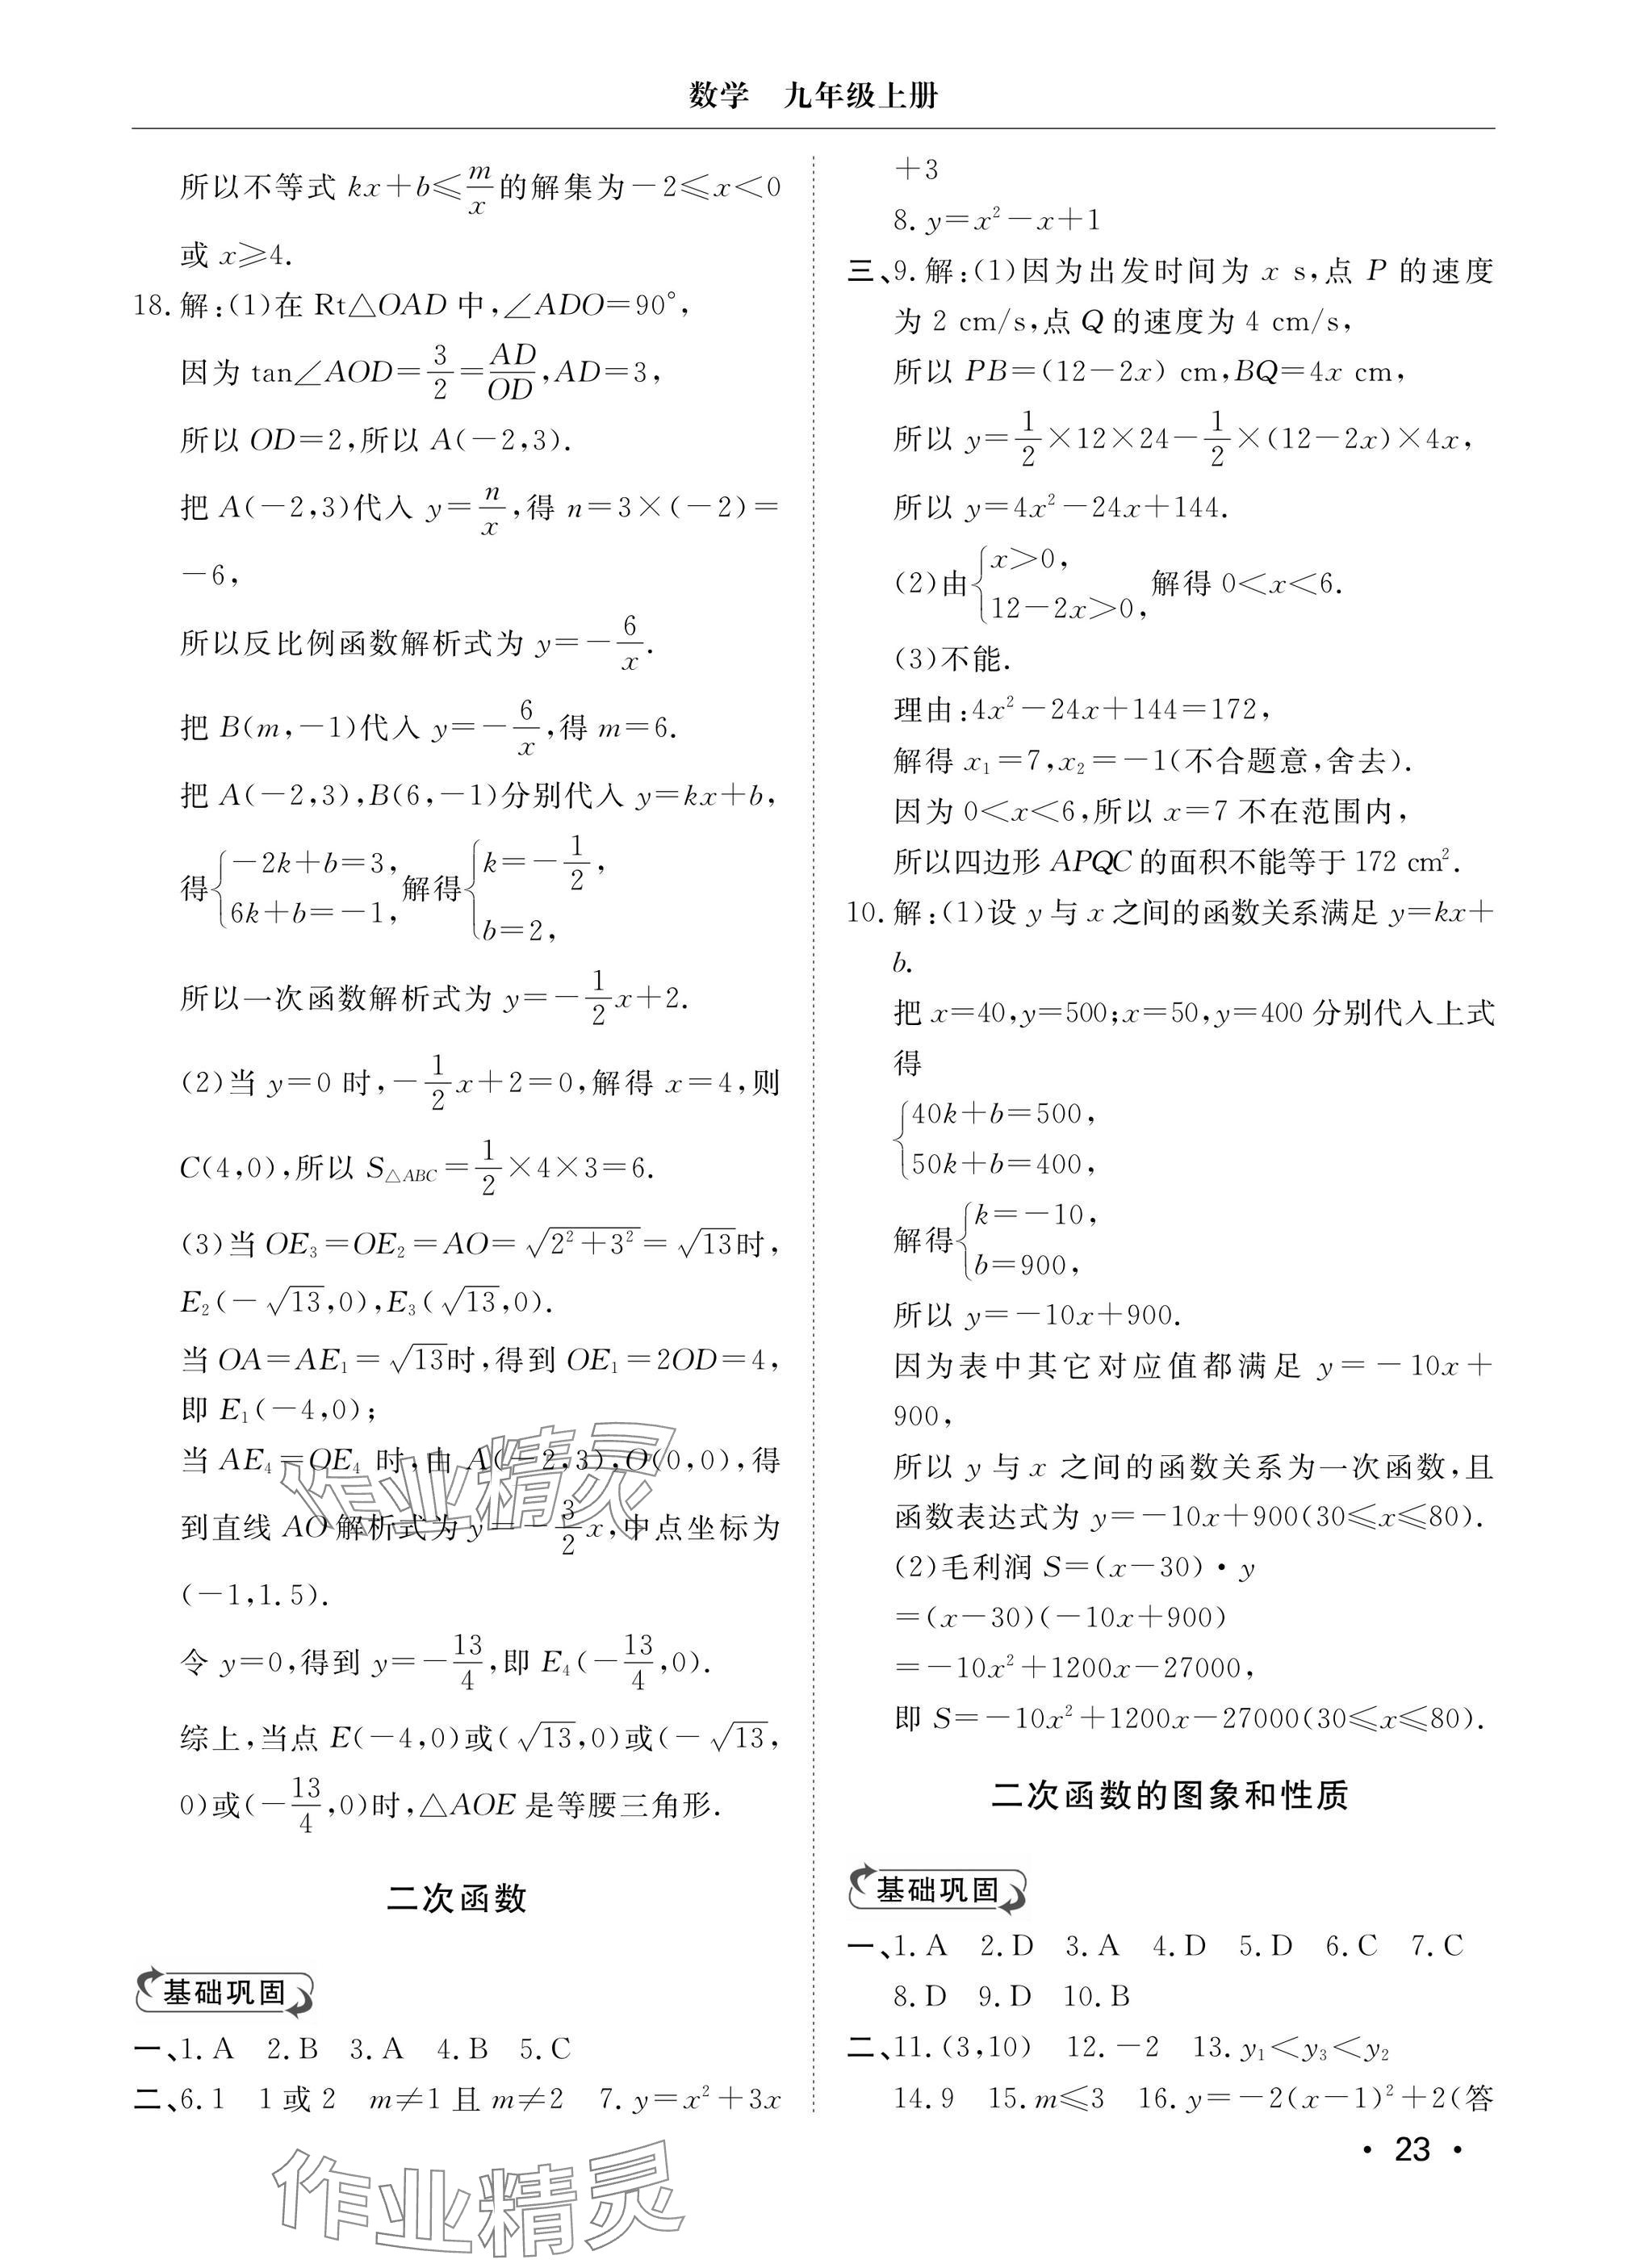 数学　九年级上册
所以不等式 kx+b≤m/x的解集为-2≤x<0
或 x≥4.
18.解:(1)在 Rt△OAD 中,∠ADO=90°,
因为 tan∠AOD=3/2=AD/OD,AD=3,
所以 OD=2,所以 A(-2,3).
把 A(-2,3)代入 y=n/x,得 n=3×(-2)=
-6,
所以反比例函数解析式为 y=-6/x.
把 B(m,-1)代入 y=-6/x,得 m=6.
把 A(-2,3),B(6,-1)分别代入 y=kx+b,
得{-2k+b=3, 6k+b=-1,解得{k=-1/2, b=2,
所以一次函数解析式为 y=-1/2x+2.
(2)当 y=0 时,-1/2x+2=0,解得 x=4,则
C(4,0),所以 S△ABC=1/2×4×3=6.
(3)当 OE₃=OE₂=AO=√(2²+3²)=√13时,
E₂(-√13,0),E₃(√13,0).
当 OA=AE₁=√13时,得到 OE₁=2OD=4,
即 E₁(-4,0);
当 AE₄=OE₄ 时,由 A(-2,3),O(0,0),得
到直线 AO 解析式为 y=-3/2x,中点坐标为
(-1,1.5).
令 y=0,得到 y=-13/4,即 E₄(-13/4,0).
综上,当点 E(-4,0)或(√13,0)或(-√13,
0)或(-13/4,0)时,△AOE 是等腰三角形.
二次函数
基础巩固
一、1.A　2.B　3.A　4.B　5.C
二、6.1　1 或 2　m≠1 且 m≠2　7.y=x²+3x
+3
8.y=x²-x+1
三、9.解:(1)因为出发时间为 x s,点 P 的速度
为 2 cm/s,点 Q 的速度为 4 cm/s,
所以 PB=(12-2x) cm,BQ=4x cm,
所以 y=1/2×12×24-1/2×(12-2x)×4x,
所以 y=4x²-24x+144.
(2)由{x>0, 12-2x>0,解得 0<x<6.
(3)不能.
理由:4x²-24x+144=172,
解得 x₁=7,x₂=-1(不合题意,舍去).
因为 0<x<6,所以 x=7 不在范围内,
所以四边形 APQC 的面积不能等于 172 cm².
10.解:(1)设 y 与 x 之间的函数关系满足 y=kx+
b.
把 x=40,y=500;x=50,y=400 分别代入上式
得
{40k+b=500,
50k+b=400,
解得{k=-10, b=900,
所以 y=-10x+900.
因为表中其它对应值都满足 y=-10x+
900,
所以 y 与 x 之间的函数关系为一次函数,且
函数表达式为 y=-10x+900(30≤x≤80).
(2)毛利润 S=(x-30)·y
=(x-30)(-10x+900)
=-10x²+1200x-27000,
即 S=-10x²+1200x-27000(30≤x≤80).
二次函数的图象和性质
基础巩固
一、1.A　2.D　3.A　4.D　5.D　6.C　7.C
8.D　9.D　10.B
二、11.(3,10)　12.-2　13.y₁<y₃<y₂
14.9　15.m≤3　16.y=-2(x-1)²+2(答
·23·
作业精灵
作业精灵